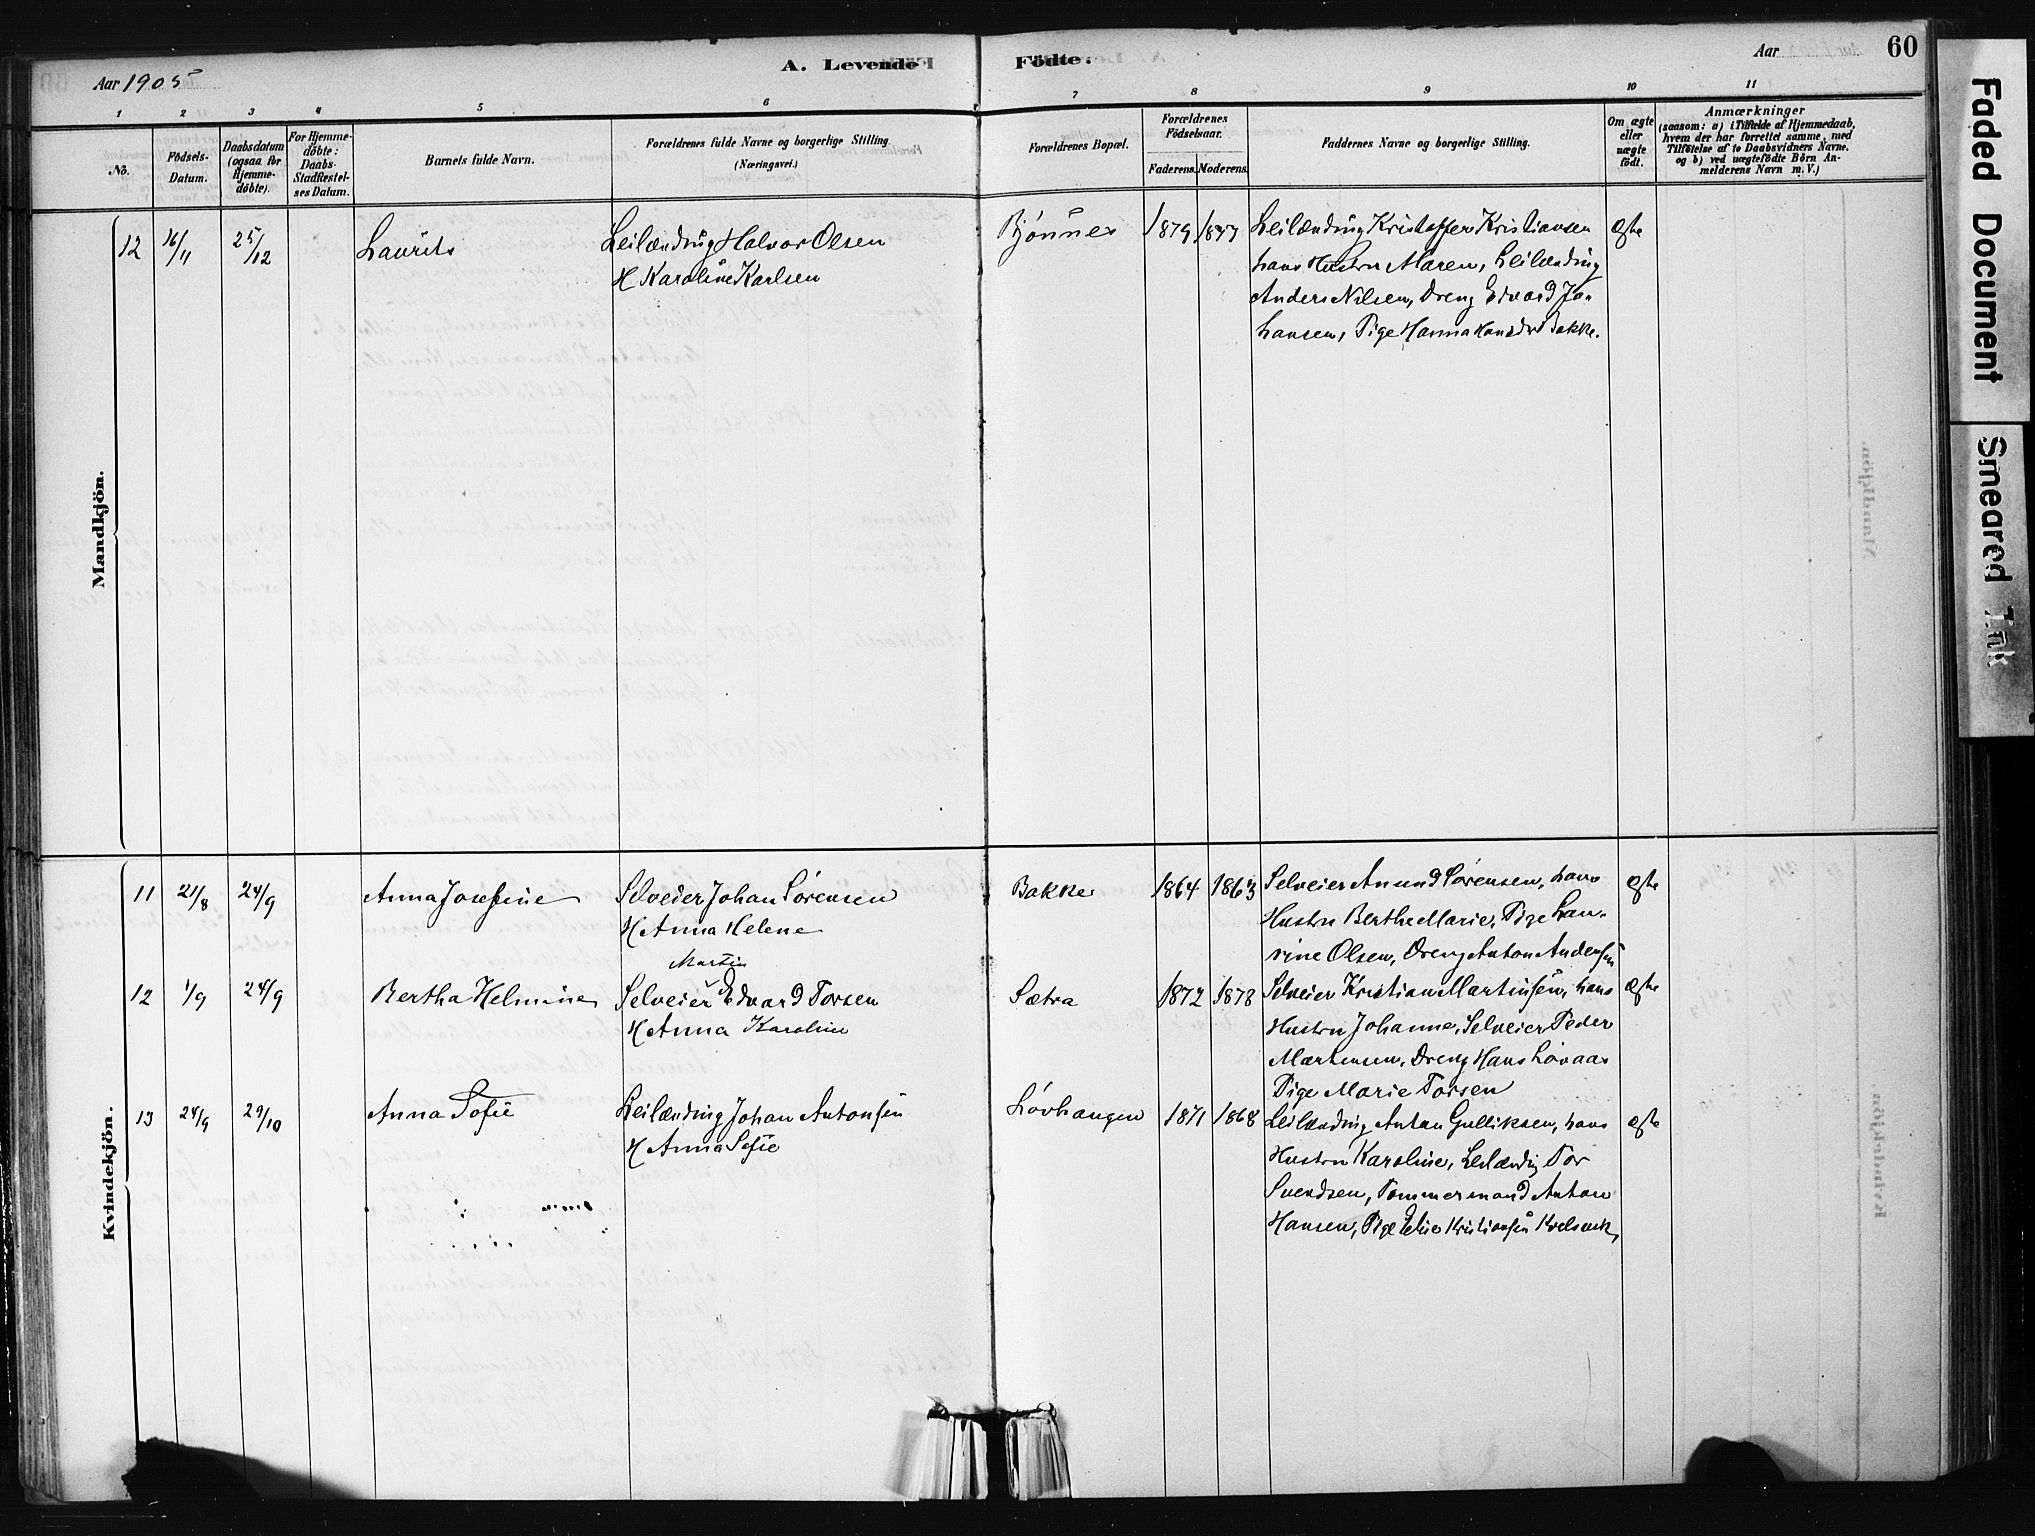 Aar 1905
A. Levende Födte.
Aar
60
1 2 3 4 5 6 7 8 9 10 11
No.
Födsels-Datum.
Daabsdatum (ogsaa for Hjemme-döbte).
For Hjemme-döbte: Daabs-Stadfæstel-ses Datum.
Barnets fulde Navn.
Forældrenes fulde Navne og borgerlige Stilling. (Næringsvei.)
Forældrenes Bopæl.
Forældrenes Födselsaar.
Faderens. Moderens.
Faddernes Navne og borgerlige Stilling.
Om ægte eller uægte födt.
Anmærkninger
(saasom: a) i Tilfælde af Hjemmedaab,
hvem der har forrettet samme, med
Tilföielse af to Daabsvidners Navne.
og b) ved uægtefödte Börn An-
melderens Navn m. V.)
Mandkjön.
12 16/11 25/12 Laurits Leilænding Halvor Olsen Bjønnes 1879 1877 Leilænding Kristoffer Kristiansen ægte
H Karoline Karlsen hans Hustru Maren, Leilænding
Anders Nilsen, Dreng Edvard Jo-
hansen, Pige Hanna Bakke.
Kvindekjön.
11 21/8 24/9 Anna Josefine Selveier Johan Sørensen Bakke 1864 1863 Selveier Anund Sørensen, hans ægte
H Anna Helene Hustru Berthe Marie, Pige Lau-
rine Olsen, Dreng Anton Andersen
Martin
12 1/9 24/9 Bertha Helmine Selveier Edvard Torsen Sætra 1872 1878 Selveier Kristian Martinsen, hans ægte
H Anna Karoline Hustru Johanne, Selveier Peder
Martensen, Dreng Hans Løvaas
Pige Marie Torsen
13 24/9 29/10 Anna Sofie Leilænding Johan Antonsen Løvhaugen 1871 1868 Leilænding Anton Gulliksen, hans ægte
H Anna Sofie Hustru Karoline, Leilændig Tor
Svendsen, Tømmermand Anton
Hansen, Pige Kristiansen
Faded Document
Smeared Ink